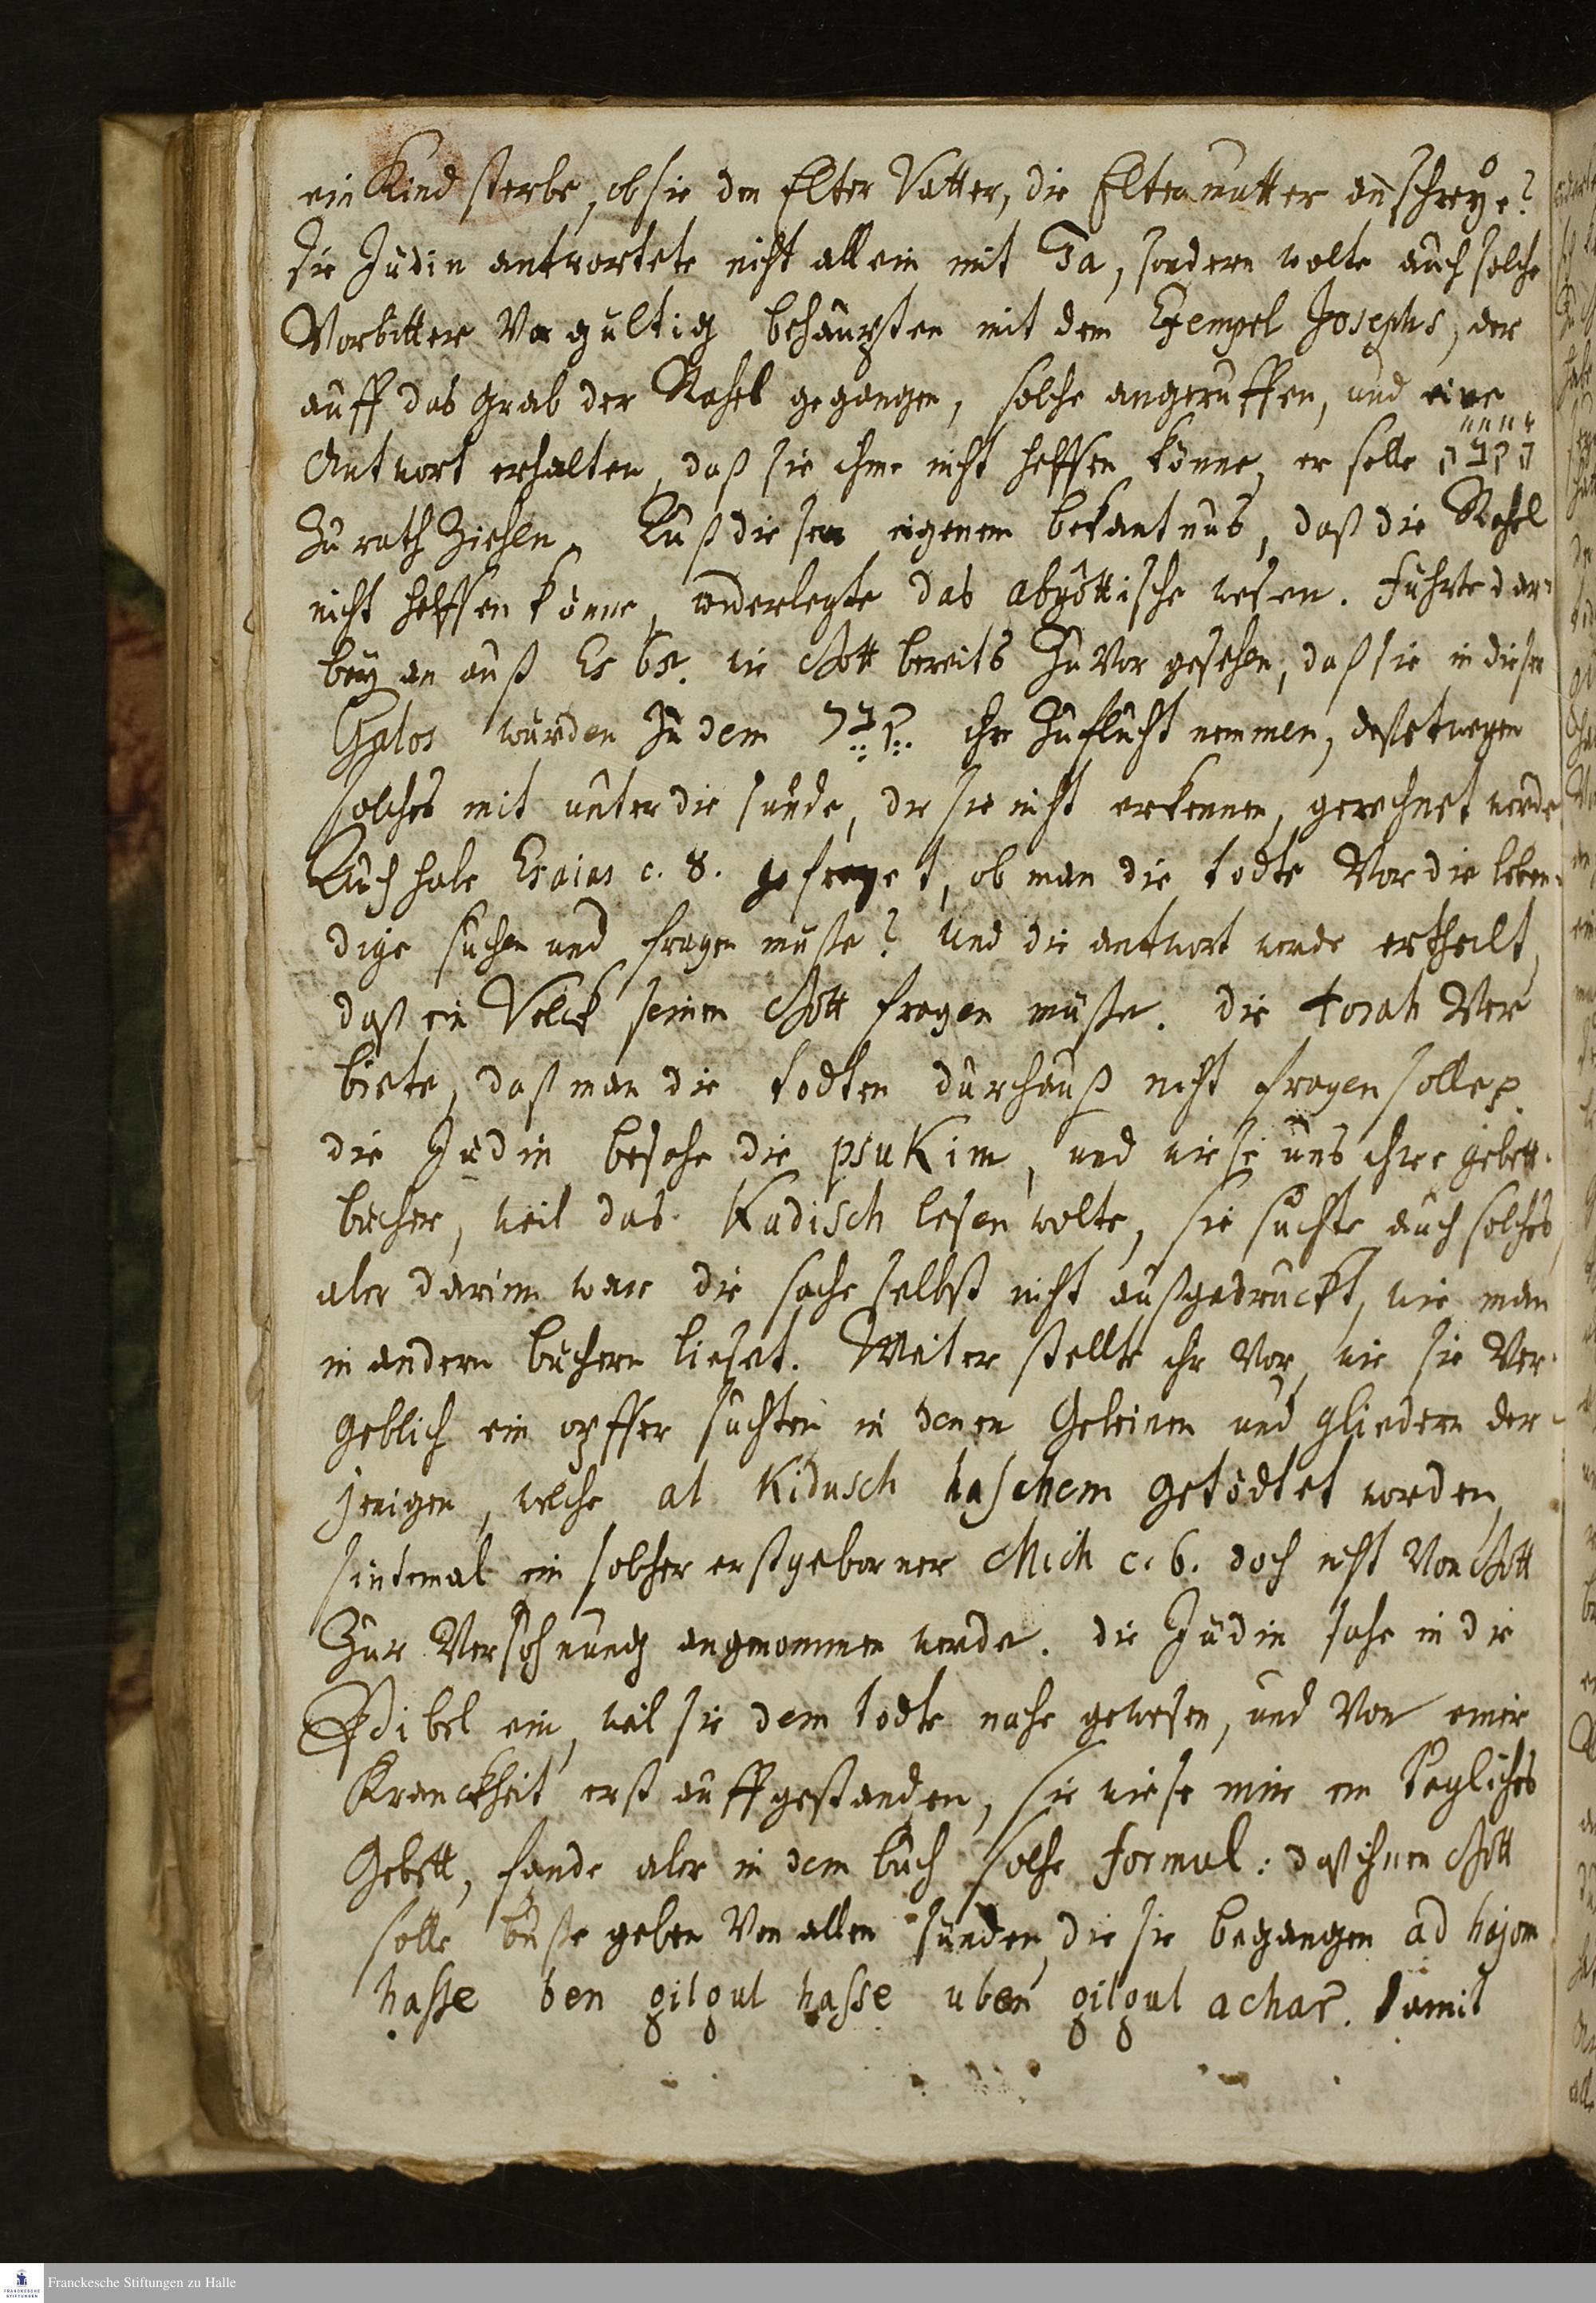 ein Kind sterbe, ob sie den Elter Vatter, die Eltermutter anschreye?
die Jüdin antwortete nicht allein mit Ja, sondern wolte auch solche
Vorbitter Vor gültig behaupten mit dem Exempel Josephs, der
auff das Grab der Rahel gegangen, solche angeruffen, und eine
Antwort erhalten, daß sie ihme nicht helffen könne, er solle
Zu rath Ziehen. Auß diesem eigenem bekantnus, daß die Rahel
nicht helffen könne, widerlegte das abgöttische wesen. Führte dar-
bey an auß Es 65. wie Gott bereits Zuvor gesehen, daß sie in diesem
Galos würden Zu dem קבר ihr Zuflucht nemmen, dessetwegen
solches mit unter die sünde, die sie nicht erkennen, gerechnet werde
Auch habe Esaias c. 8. gefraget, ob man die todte Vor die leben-
dige suchen und fragen müsse? Und die antwort werde ertheilt,
daß ein Volck seinen Gott fragen müsse. Die torah Ver
biete, daß man die todten durchauß nicht fragen solle.
die Jüdin besahe die psukim, und wiese uns ihre gebett-
bücher, weil das Kadisch lesen wolte, sie suchte auch solches
aber darinn ware die sache selbst nicht außgedruckt, wie man
in andern büchern lieset. Weiter stellte ihr Vor, wie sie Ver-
geblich ein opffer suchten in denen Gebeinen und gliedern der-
jenigen, welche al Kidusch haschem getödtet worden,
sintemal ein solcher erstgeborner Mich c. 6. doch nicht Von Gott
Zur Versöhnung angenommen werde. die Jüdin sahe in die
Bibel ein, weil sie dem todte nahe gewesen, und Von einer
Kranckheit erst auffgestanden, sie wiese mir ein tägliches
Gebett, fande aber in dem buch solche formul: daß ihnen Gott
solle buße geben Von allen sünden, die sie begangen ad hajom
hasse ben gilgul hasse uben gilgul achar. damit
Franckesche Stiftungen zu Halle